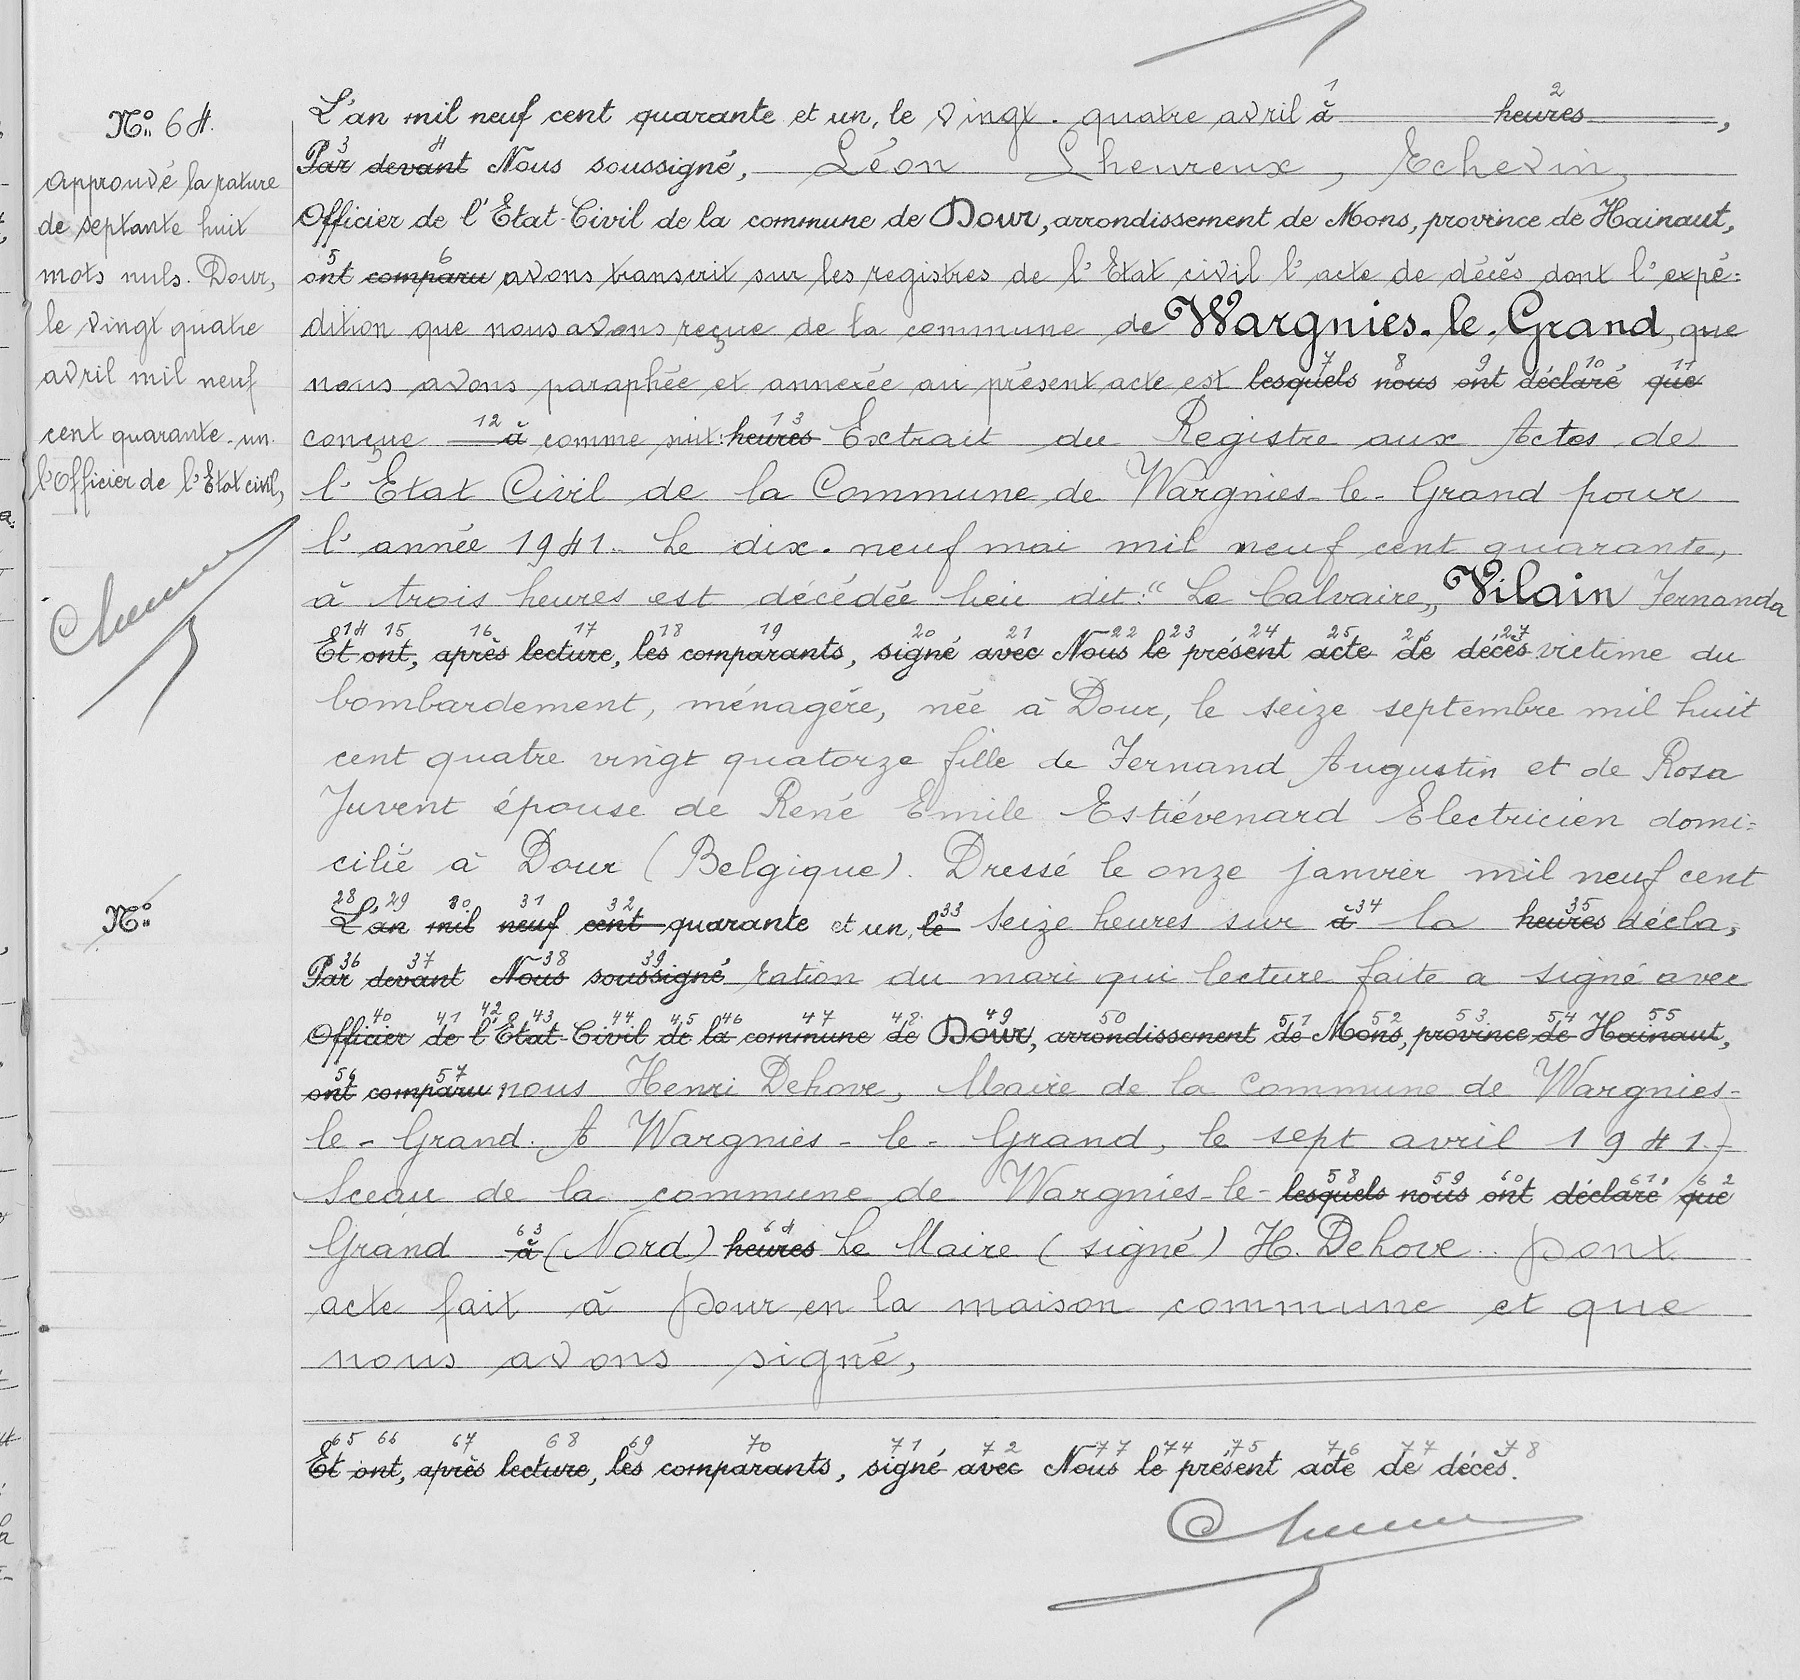 N° 64.
approuvé la rature
de septante huit
mots nuls. Dour,
le vingt quatre
avril mil neuf
cent quarante-un.
l'Officier de l'Etat civil,
L'an mil neuf cent quarante et un, le vingt-quatre avril à heures,
1 2
Par devant Nous soussigné, Léon Lheureux, Echevin,
3 4
Officier de l'Etat-Civil de la commune de Dour, arrondissement de Mons, province de Hainaut,
ont comparu avons transcrit sur les registres de l'Etat civil l'acte de décès dont l'expé=
5 6
dition que nous avons reçue de la commune de Wargnies-le-Grand, que
nous avons paraphée et annexée au présent acte est lesquels nous ont déclaré que
7 8 9 10 11
conçue à comme suit: heures Extrait du Registre aux Actes de
12 13
l'Etat Civil de la Commune de Wargnies-le-Grand pour
l'année 1941. Le dix-neuf mai mil neuf cent quarante,
à trois heures est décédée lieu dit: "Le Calvaire„ Vilain Fernanda
Et ont, après lecture, les comparants, signé avec Nous le présent acte de décès victime du
14 15 16 17 18 19 20 21 22 23 24 25 26 27
bombardement, ménagère, née à Dour, le seize septembre mil huit
cent quatre vingt quatorze fille de Fernand Augustin et de Rosa
Juvent épouse de René Emile Estiévenard Electricien domi=
cilié à Dour (Belgique). Dressé le onze janvier mil neuf cent
N°
L'an mil neuf cent quarante et un, le seize heures sur à la heures décla,
28 29 30 31 32 33 34 35
Par devant Nous soussigné ration du mari qui lecture faite a signé avec
36 37 38 39
Officier de l'Etat-Civil de la commune de Dour, arrondissement de Mons, province de Hainaut,
40 41 42 43 44 45 46 47 48 49 50 51 52 53 54 55
ont comparu nous Henri Dehove, Maire de la Commune de Wargnies-
56 57
le-Grand. A Wargnies-le-Grand, le sept avril 1941.
Sceau de la commune de Wargnies-le- lesquels nous ont déclaré que
58 59 60 61 62
Grand à (Nord) heures Le Maire (signé) H. Dehove. Dont
63 64
acte fait à Dour en la maison commune et que
nous avons signé,
Et ont, après lecture, les comparants, signé avec Nous le présent acte de décès.
65 66 67 68 69 70 71 72 77 74 75 76 77 78